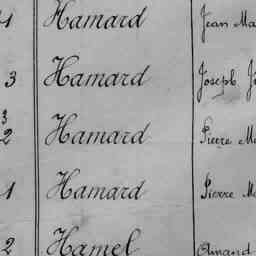 1 Hamard Jean Ma
3 Hamard Joseph J
3
2 Hamard Pierre Ma
1 Hamard Pierre M
2 Hamel Amand